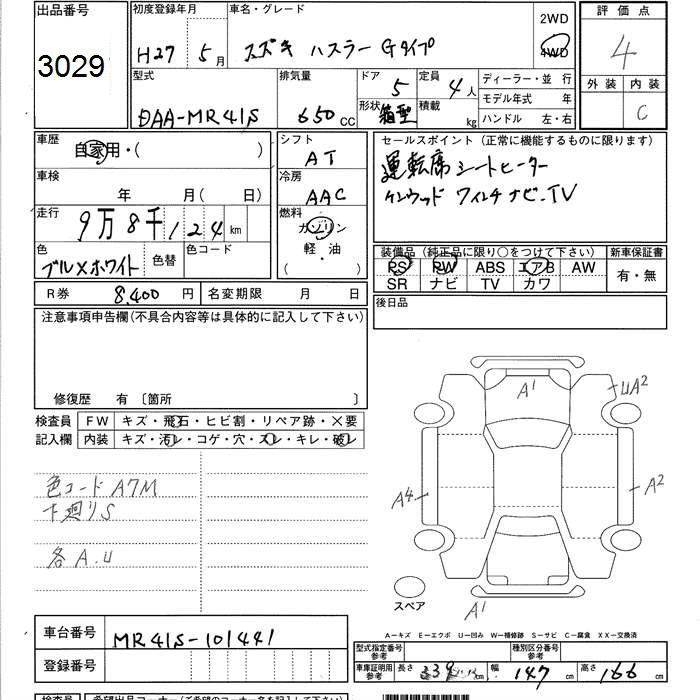 出品番号
3029
初度登録年月
H27 5月
車名・グレード
スズキ ハスラー Gタイプ
2WD
4WD
評価点
4
外装 内装
C
型式
DAA-MR41S
排気量
650cc
ドア
5
形状
箱型
定員
4人
積載
kg
ディーラー・並行
モデル年式 年
ハンドル 左・右
車歴
自家用・( )
車検
年 月( 日)
走行
9万8千124km
色
ブル×ホワイト
色替
色コード
シフト
AT
冷房
AAC
燃料
ガソリン
軽・油
( ・ )
セールスポイント(正常に機能するものに限ります)
運転席シートヒーター
ケンウッド ワイレチナビ・TV
装備品(純正品に限り○をつけて下さい)
PS PW ABS エアB AW
SR ナビ TV カワ
新車保証書
有・無
後日品
R券 8,400円
名変期限 月 日
注意事項申告欄(不具合内容等は具体的に記入して下さい)
修復歴 有〔箇所 〕
検査員
記入欄
FW キズ・飛石・ヒビ割・リペア跡・×要
内装 キズ・汚レ・コゲ・穴・スレ・キレ・破レ
色コード A7M
下廻りS
各A.U
A1
UA2
A4
A2
A1
スペア
A-キズ E-エクボ U-凹み W-補修跡 S-サビ C-腐食 XX-交換済
車台番号
MR41S-101441
登録番号
型式指定番号
参考
種別区分番号
参考
車庫証明用
参考
長さ 339cm 幅 147cm 高さ 166cm
検査員
希望出品コーナー(ご希望のコーナー名を記入下さい)